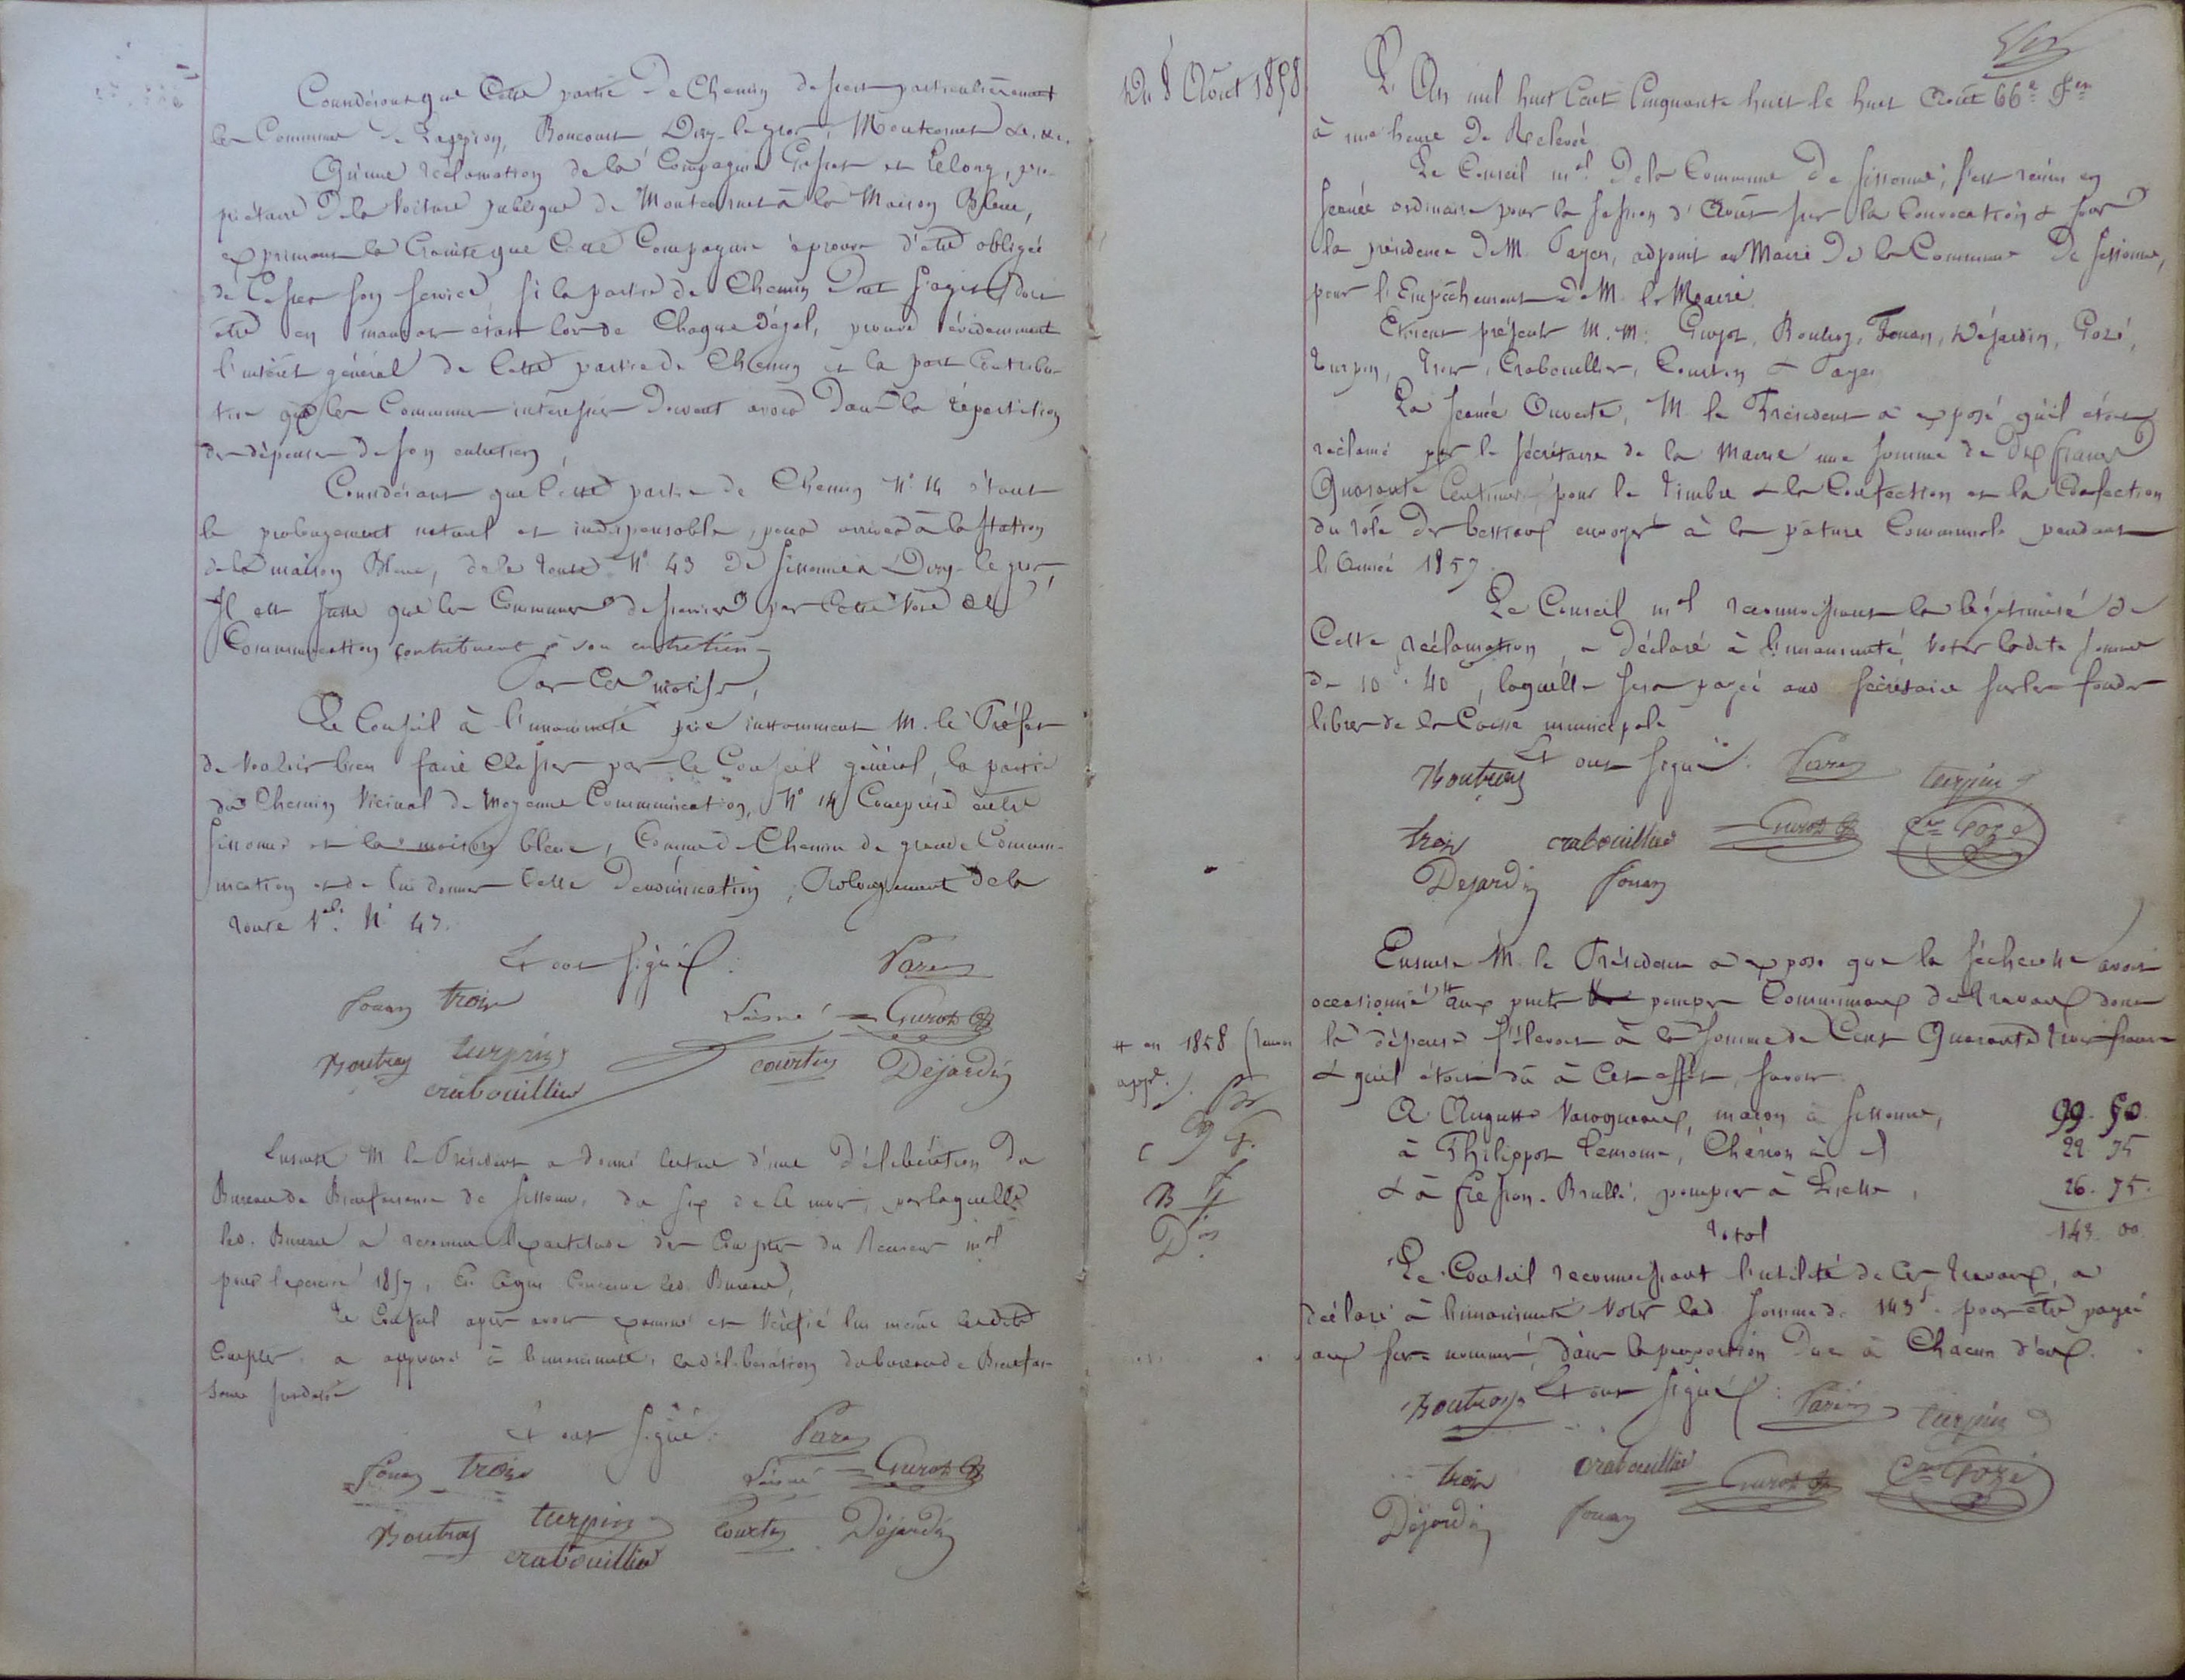 Considérant que cette partie de Chemin dessert particulièrement
les Communes de Lappion, Boncourt Dizy-le-gros, Montcornet &c. &c.
Qu'une réclamation de la Compagnie et Lelong, pro-
priétaire de la Voiture publique de Montcornet à la Maison Bleue,
exprimant la Crainte que Cette Compagnie éprouve d'être obligée
de Cesser son Service, si la partie de Chemin dont s'agit, doit
être en mauvais état lors de Chaque dégel, prouve évidemment
l'intérêt général de Cette partie de Chemin et la part Contribu-
tive que les Communes intéressées doivent avoir dans la répartition
des dépenses de son entretien,
Considérant que Cette partie de Chemin N° 14 étant
le prolongement naturel et indispensable, pour arriver à la Station
de la maison Bleue, de la route N° 43 de Sissonne à Dizy-le-gros,
Il est juste que les Communes desservies par Cette Voie de
Communication contribuent à son entretien
Par Ces motifs,
Le Conseil à l'unanimité prie instamment M. le Préfet
de Vouloir bien faire Classer par le Conseil général, la partie
du Chemin Vicinal de moyenne Communication, N° 14 Comprise entre
Sissonne et la maison bleue, Comme Chemin de grande Commu-
nication et de lui donner Cette Dénomination, Prolongement de la
route N° 43.
Et ont Signé :
Fouan troin Laisné Guyot
Boutroy turpin courtin Déjardin
crabouillier
Ensuite M le Président a donné lecture d'une Délibération du
Bureau de Bienfaisance de Sissonne, du Six de Ce mois, par laquelle
led. Bureau a reconnu l'exactitude des Comptes du Receveur mal
pour l'exercice 1857, En Ce qui Concerne led. Bureau,
Le Conseil après avoir examiné et Vérifié lui même lesdits
Comptes, a approuvé à l'unanimité, la délibération du bureau de Bienfai-
sance susdatée
Et ont Signé :
Fouan troin Laisné Guyot
Boutroy turpin Courtin Déjardin
crabouillier
Du 8 Août 1858
L'An mil huit Cent Cinquante huit le huit Août 66e
à une heure de Relevée
Le Conseil mal De la Commune De Sissonne, s'est réuni en
Séance ordinaire pour la Session d'Août sur la Convocation & sous
la présidence De M. adjoint au Maire De la Commune De Sissonne,
pour l'Empêchement De M. le Maire.
Etaient présents M.M. Guyot, Boutroy, Fouan, Déjardin, Gozé,
Turpin, Troin, Crabouillier, Courtin &
La Séance Ouverte, M. le Président a exposé qu'il était
réclamé par le Sécrétaire de la Mairie une Somme de Dix francs
Quarante Centimes, pour le Timbre & la Confection et la Confection
du rôle des bestiaux envoyés à la pâture Communale pendant
l'Année 1857.
Le Conseil mal reconnaissant la légitimité de
Cette réclamation, a déclaré à l'unanimité, Voter ladite Somme
de 10 f 40, laquelle sera payée aud. Sécrétaire sur les fonds
libres de la Caisse municipale
Et ont Signé :
Boutroy turpin
troin crabouillier Guyot Gozé
Dejardin Fouan
Ensuite M. le Président a exposé que la Sécheresse avait
occasionné # aux puits pompes Communaux des travaux dont
la dépense s'élevait à la Somme de Cent Quarante trois francs
& qu'il était dû à Cet effet, Savoir :
# en 1858
A Auguste maçon à Sissonne, 99. 50.
à Philippot Lemoine, Charron à id 22. 75
& à Brullé, pompier à Liesse, 26. 75.
Total 143. 00.
Le Conseil reconnaissant l'utilité de Ces travaux, a
déclaré à l'unanimité Voter lad. Somme de 143 f. pour être payée
aux Sus nommés, dans la proportion Due à Chacun d'eux.
Et ont Signé :
Boutroy turpin
troin crabouillier Guyot Gozé
Déjardin Fouan